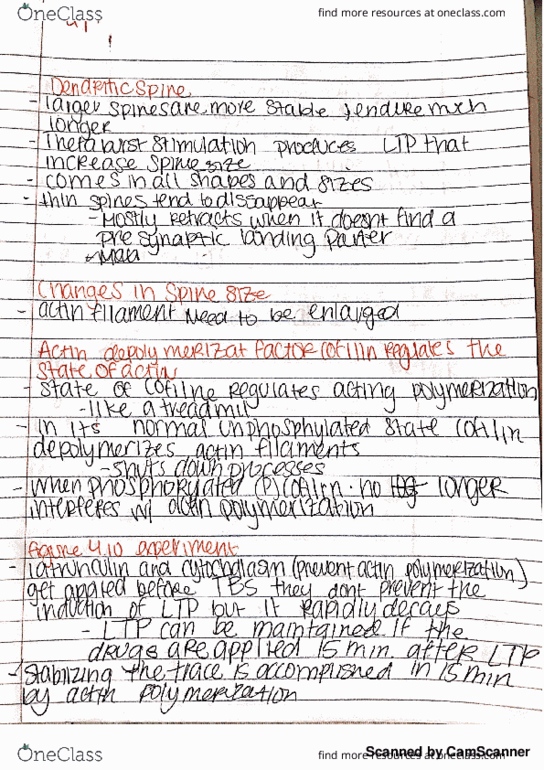 OneClass
find more resources at oneclass.com
Dendritic Spine
- larger spines are more stable & endure much
longer
- Theta burst stimulation produces LTP that
increase spine size
- comes in all shapes and sizes
- thin spines tend to dissappear
- Mostly retracts when it doesnt find a
pre synaptic landing parter
Changes in Spine Size
- actin filament need to be enlarged
Actin depolymerizat factor cofilin reglates the
state of actin
- State of Cofilne regulates acting polymerization
- like a treadmill
- in its normal unphosphylated state cofilin
depolymerizes actin filaments
- shuts down processes
- when phosphorydated (P) cofilin no longer
interferes w/ actin polymerization
figure 4.10 experiment
- latrunculin and cytochlasin (prevent actin polymerization)
get applied before TBS they dont prevent the
induction of LTP but it rapidly decays
- LTP can be maintained if the
drugs are applied 15 min. after LTP
- Stabilizing the trace is accomplished in 15 min
by actin polymerization
OneClass
find more resources at oneclass.com
Scanned by CamScanner